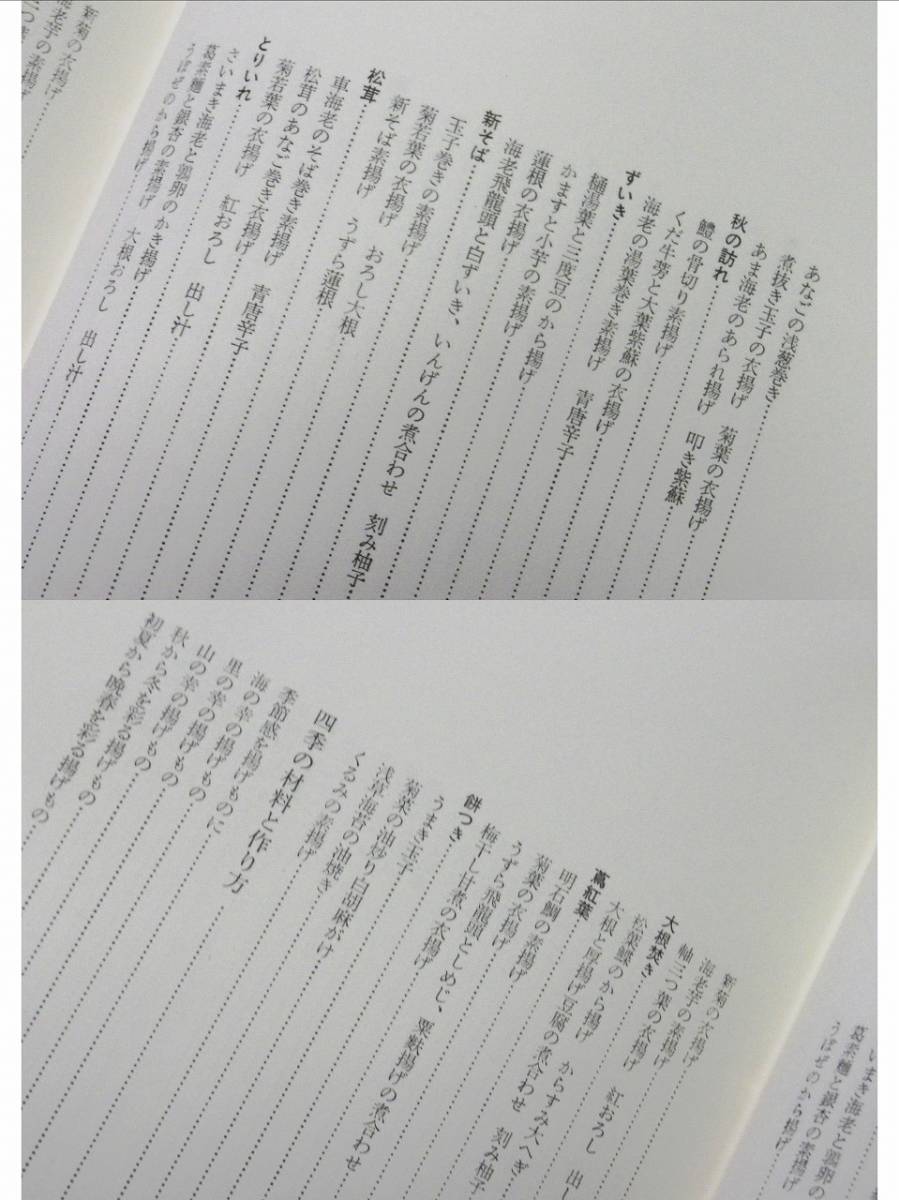 あなごの浅葱巻き
煮抜き玉子の衣揚げ　菊葉の衣揚げ
あま海老のあられ揚げ　叩き紫蘇
秋の訪れ
鱧の骨切り素揚げ
くだ牛蒡と大葉紫蘇の衣揚げ
海老の湯葉巻き素揚げ　青唐辛子
ずいき
樋湯葉と三度豆のから揚げ
かますと小芋の素揚げ
蓮根の衣揚げ
海老飛龍頭と白ずいき、いんげんの煮合わせ　刻み柚子
新そば
玉子巻きの素揚げ
菊若葉の衣揚げ　おろし大根
新そば素揚げ　うずら蓮根
松茸
車海老のそば巻き素揚げ
松茸のあなご巻き衣揚げ　青唐辛子
菊若葉の衣揚げ　紅おろし　出し汁
とりいれ
さいまき海老と鶏卵のかき揚げ
葛素麺と銀杏の素揚げ　大根おろし　出し汁
うぼぜのから揚げ
新菊の衣揚げ
海老芋の素揚げ
新菊の衣揚げ
海老芋の素揚げ
軸三つ葉の衣揚げ　紅おろし
大根焚き
松葉鰈のから揚げ
大根と厚揚げ豆腐の煮合わせ　刻み柚子
蔦紅葉
明石鯛の素揚げ
菊葉の衣揚げ
うずら飛龍頭としめじ、粟麩揚げの煮合わせ
梅干し甘煮の衣揚げ
餅つき
うまき玉子
菊菜の油炒り白胡麻がけ
浅草海苔の油焼き
くるみの素揚げ
四季の材料と作り方
季節感を揚げものに
海の幸の揚げもの
里の幸の揚げもの
山の幸の揚げもの
秋から冬を彩る揚げもの
初夏から晩春を彩る揚げもの
いまき海老と鶏卵の
葛素麺と銀杏の素揚げ
うぼぜのから揚げ